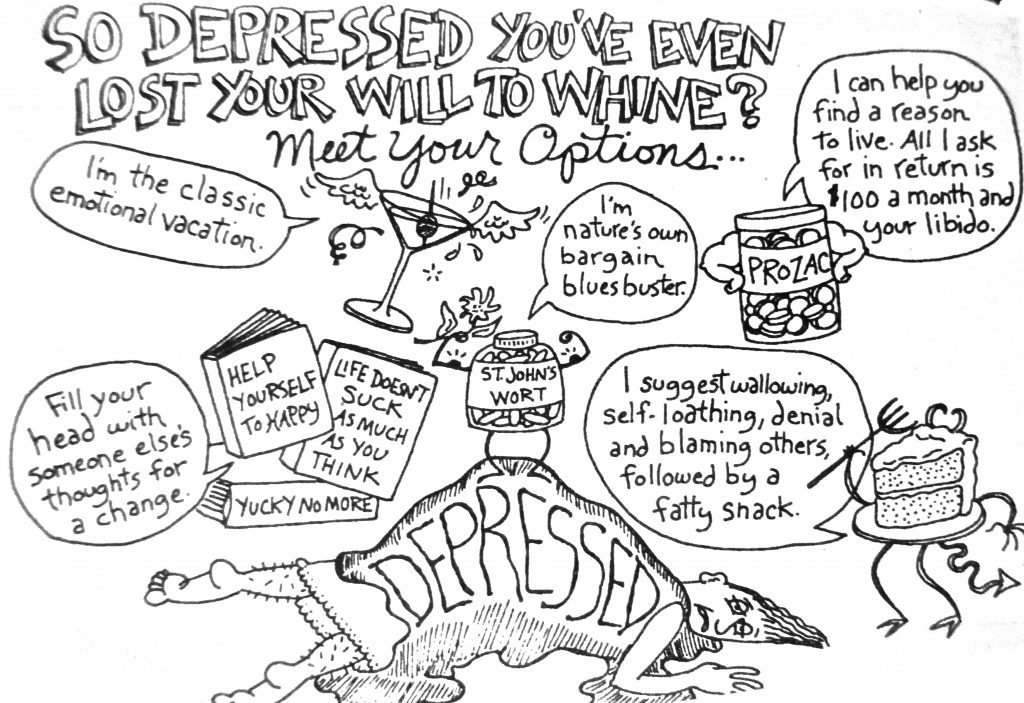 SO DEPRESSED YOU'VE EVEN
LOST YOUR WILL TO WHINE?
Meet Your Options...
I'm the classic
emotional vacation.
I'm
nature's own
bargain
blues buster.
I can help you
find a reason
to live. All I ask
for in return is
$100 a month and
your libido.
PROZAC
HELP
YOURSELF
TO HAPPY
LIFE DOESN'T
SUCK
AS MUCH
AS YOU
THINK
YUCKY NO MORE
Fill your
head with
someone else's
thoughts for
a change.
ST. JOHN'S
WORT
I suggest wallowing,
self-loathing, denial
and blaming others,
followed by a
fatty snack.
DEPRESSED